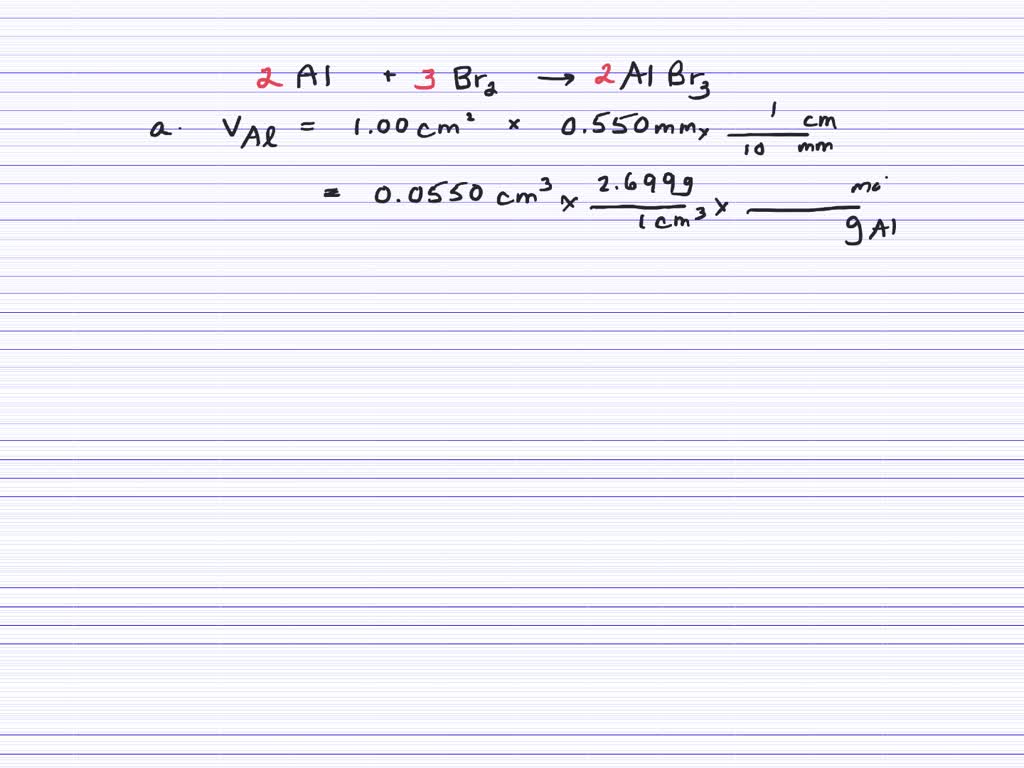 2 Al + 3 Br₂ → 2 AlBr₃
a. V_Al = 1.00 cm² × 0.550 mm × 1 cm / 10 mm
= 0.0550 cm³ × 2.699g / 1 cm³ × mo / g Al